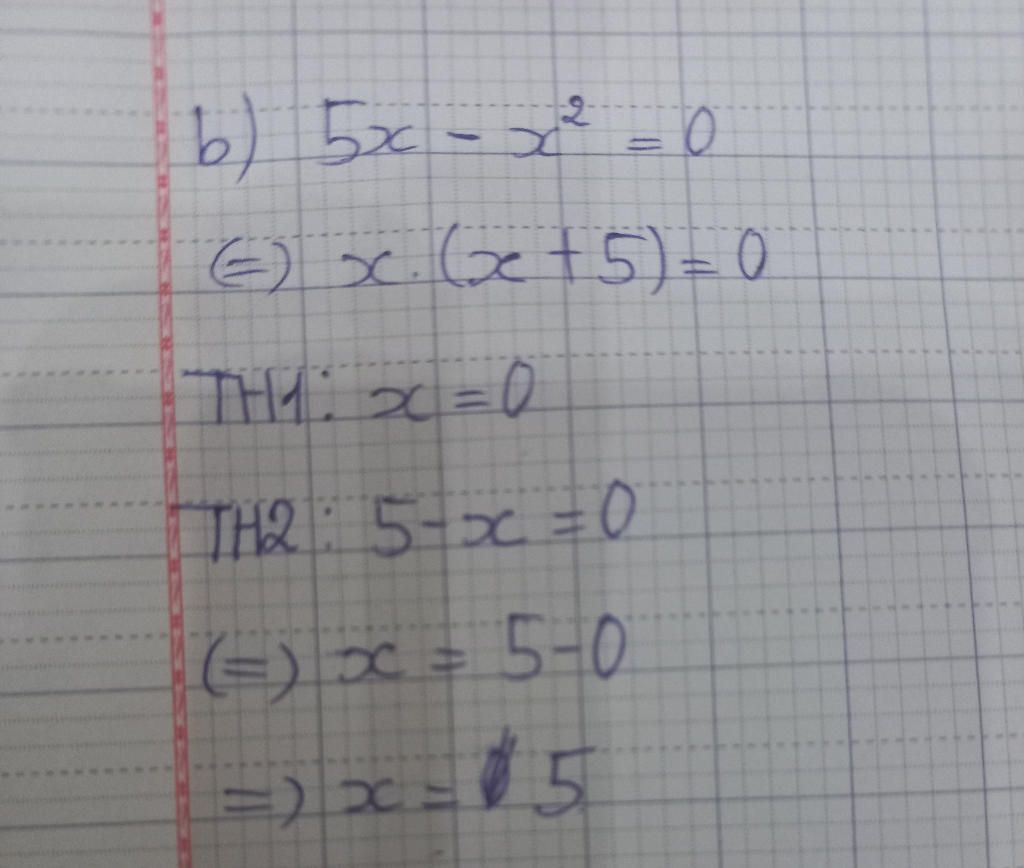 b) 5x - x² = 0
(=) x.(x + 5) = 0
TH1: x = 0
TH2: 5 - x = 0
(=) x = 5 - 0
=) x = 5